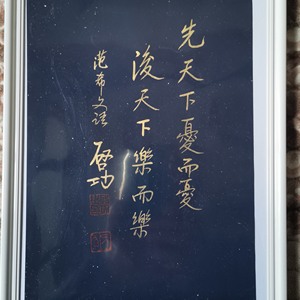 先天下憂而憂
後天下樂而樂
范希文語
啓功